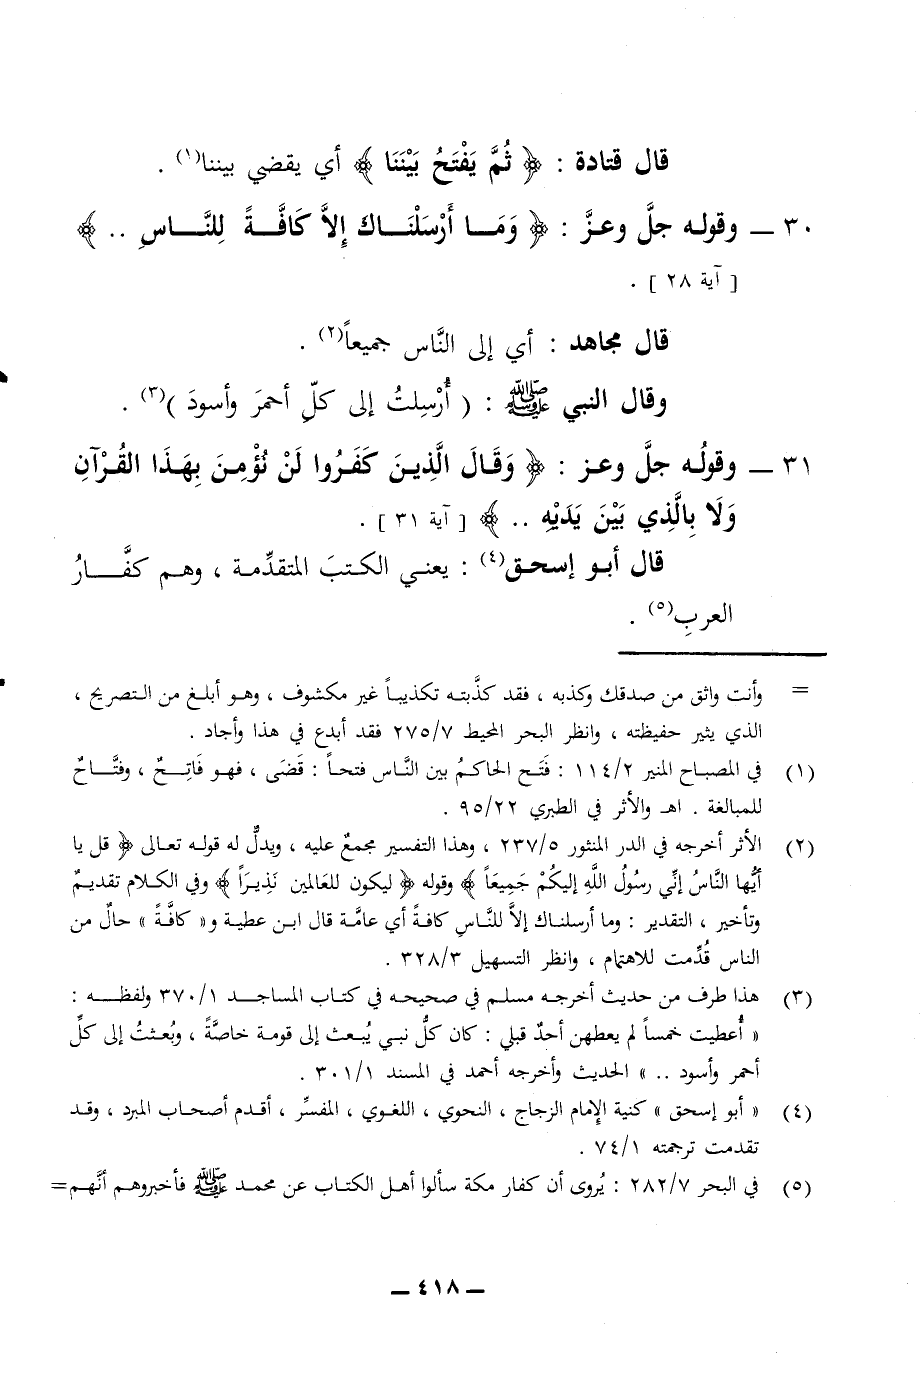 قال قتادة : ﴿ ثُمَّ يَفْتَحُ بَيْنَنَا ﴾ أي يقضي بيننا(١) .
٣٠ ـ وقوله جلَّ وعزَّ : ﴿ وَمَـا أَرْسَلْنَـاكَ إِلاَّ كَافَّـةً لِلنَّـاسِ .. ﴾
[ آية ٢٨ ] .
قال مجاهد : أي إلى النَّاس جميعاً(٢) .
وقال النبي ﷺ : ( أُرْسِلتُ إلى كلِّ أحمرَ وأسودَ )(٣) .
٣١ ـ وقولُه جلَّ وعز : ﴿ وَقَالَ الَّذِينَ كَفَرُوا لَنْ نُؤْمِنَ بِهَذَا القُرْآنِ
وَلَا بِالَّذِي بَيْنَ يَدَيْهِ .. ﴾ [ آية ٣١ ] .
قال أبو إسحق(٤) : يعني الكتبَ المتقدِّمة ، وهم كفَّـارُ
العربِ(٥) .
= وأنت واثق من صدقك وكذبه ، فقد كذَّبته تكذيباً غير مكشوف ، وهو أبلغ من التصريح ،
الذي يثير حفيظته ، وانظر البحر المحيط ٢٧٥/٧ فقد أبدع في هذا وأجاد .
(١) في المصباح المنير ١١٤/٢ : فَتَح الحاكمُ بين النَّاس فتحاً : قَضَى ، فهو فَاتِـحٌ ، وفتَّـاحٌ
للمبالغة . اهـ والأثر في الطبري ٩٥/٢٢ .
(٢) الأثر أخرجه في الدر المنثور ٢٣٧/٥ ، وهذا التفسير مجمعٌ عليه ، ويدلُّ له قوله تعالى ﴿ قل يا
أيُّها النَّاسُ إنِّي رسُولُ اللَّهِ إليكُمْ جَمِيعَاً ﴾ وقوله ﴿ ليكون للعَالمين نَذِيرَاً ﴾ وفي الكلام تقديمٌ
وتأخير ، التقدير : وما أرسلناك إلاَّ للنَّاسِ كافةً أي عامَّة قال ابن عطية و« كافَّةً » حالٌ من
الناس قُدِّمت للاهتمام ، وانظر التسهيل ٣٢٨/٣ .
(٣) هذا طرف من حديث أخرجه مسلم في صحيحه في كتاب المساجـد ٣٧٠/١ ولفظـه :
« أُعطيت خمساً لم يعطهن أحدٌ قبلي : كان كلُّ نبي يُبعث إلى قومة خاصَّةً ، وبُعثتُ إلى كلِّ
أحمر وأسود .. » الحديث وأخرجه أحمد في المسند ٣٠١/١ .
(٤) « أبو إسحق » كنية الإمام الزجاج ، النحوي ، اللغوي ، المفسِّر ، أقدم أصحاب المبرد ، وقد
تقدمت ترجمته ٧٤/١ .
(٥) في البحر ٢٨٢/٧ : يُروى أن كفار مكة سألوا أهل الكتاب عن محمد ﷺ فأخبروهم أنَّهم=
ـ ٤١٨ ـ